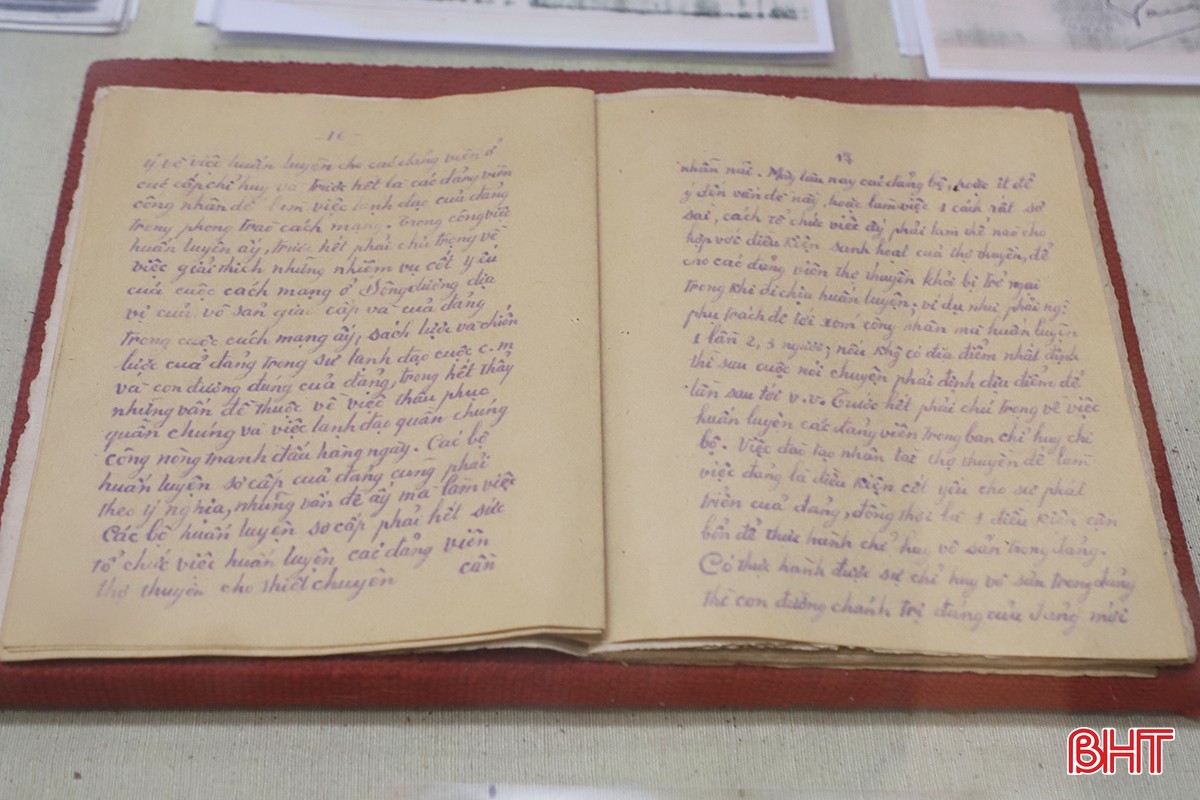 - 16 -
ý về việc huấn luyện cho các đảng viên ở
các cấp chỉ huy và trước hết là các đảng viên
công nhân để làm việc lãnh đạo của đảng
trong phong trào cách mạng. Trong công việc
huấn luyện ấy, trước hết phải chú trọng về
việc giải thích những nhiệm vụ cốt yếu
của cuộc cách mạng ở Đông dương địa
vị của vô sản giai cấp và của đảng
trong cuộc cách mạng ấy, sách lược và chiến
lược của đảng trong sự lãnh đạo cuộc c.m
và con đường đúng của đảng, trong hết thảy
những vấn đề thuộc về việc thâu phục
quần chúng và việc lãnh đạo quần chúng
công nông tranh đấu hàng ngày. Các bộ
huấn luyện sơ cấp của đảng cũng phải
theo ý nghĩa, những vấn đề ấy mà làm việc
Các bộ huấn luyện sơ cấp phải hết sức
tổ chức việc huấn luyện các đảng viên
thợ thuyền cho thiết chuyên cần
17
nhẫn nại. Mấy lâu nay các đảng bộ, hoặc ít để
ý đến vấn đề này, hoặc làm việc 1 cách rất sơ
sài, cách tổ chức việc ấy phải làm thế nào cho
hợp với điều kiện sanh hoạt của thợ thuyền, để
cho các đảng viên thợ thuyền khỏi bị trở ngại
trong khi đi chịu huấn luyện. ví dụ như phái ng
phụ trách để tới xóm công nhân mà huấn luyện
1 lần 2, 3 người; nếu khg có địa điểm nhất định
thì sau cuộc nói chuyện phải định địa điểm để
lần sau tới v.v. Trước hết phải chú trọng về việc
huấn luyện các đảng viên trong ban chỉ huy chi
bộ. Việc đào tạo nhân tài thợ thuyền để làm
việc đảng là điều kiện cốt yếu cho sự phát
triển của đảng, đồng thời là 1 điều kiện căn
bổn để thực hành chỉ huy vô sản trong đảng.
Có thực hành được sự chỉ huy vô sản trong đảng
thì con đường chánh trị đúng của đảng mới
BHT